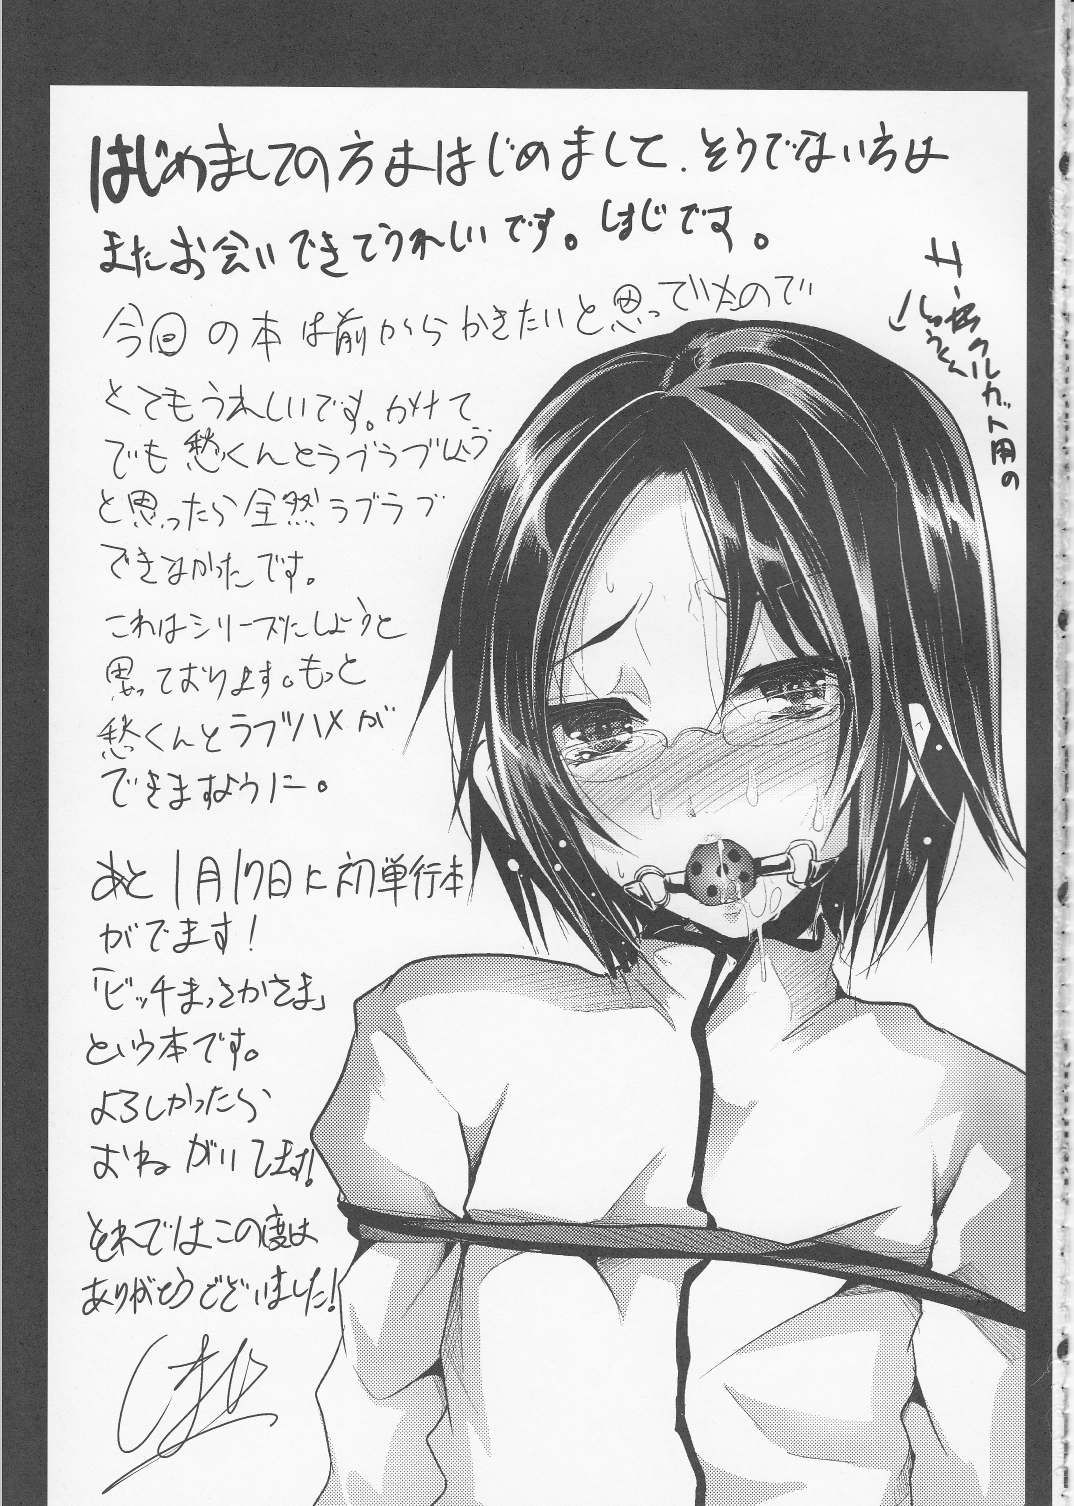 はじめましての方ははじめまして、そうでない方は
またお会いできてうれしいです。はじです。
今回の本は前からかきたいと思っていたので
とてもうれしいです。かけて
でも愁くんとラブラブしよう
と思ったら全然ラブラブ
できなかったです。
これはシリーズにしようと
思っております。もっと
愁くんとラブハメが
できますように。
あと1月17日に初単行本
がでます!
「ビッチまっさかさま」
という本です。
よろしかったら
おねがいします!
それではこの度は
ありがとうございました!
サークルカット用の
しゅうくん